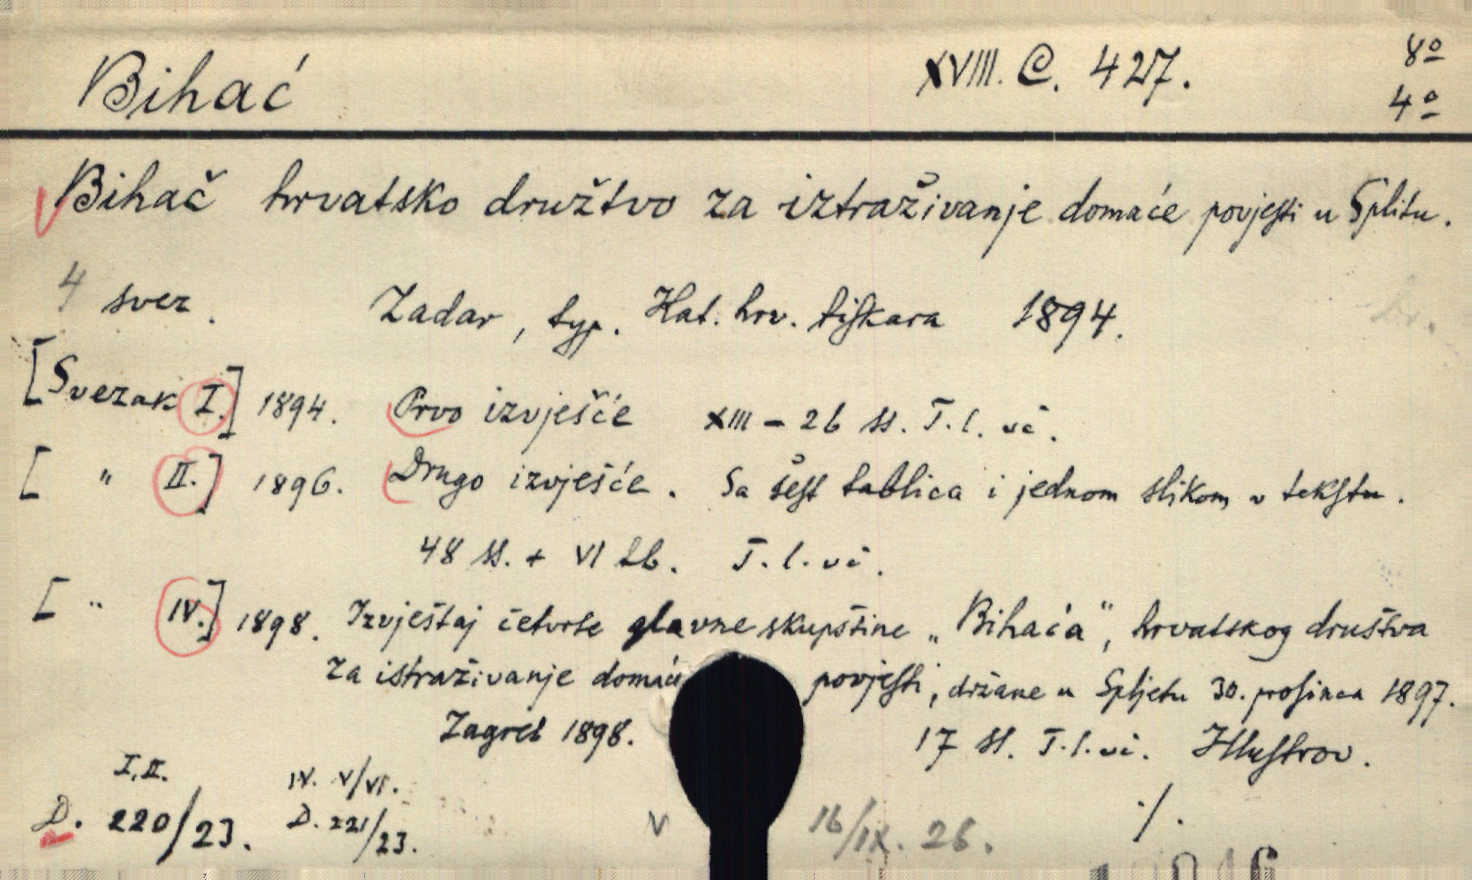 Bihać XVIII. C. 427. 8º
4º
Bihač hrvatsko družtvo za iztraživanje domaće povjesti u Splitu.
4 svez. Zadar, typ. Kat. hrv. tiskara 1894.
[Svezak I.] 1894. Prvo izvješće XIII – 26 ss. T. l. vč.
[ " II.] 1896. Drugo izvješće. Sa šest tablica i jednom slikom u tekstu.
48 ss. + VI tb. T. l. vč.
[ " IV.] 1898. Izvještaj četvrte glavne skupštine „Bihaća", hrvatskog društva
za istraživanje domaće povjesti, držane u Spljetu 30. prosinca 1897.
Zagreb 1898. 17 ss. T. l. vč. Illustrov.
I, II. IV. V/VI.
D. 220/23. D. 221/23. v 16/IX. 26. ./.